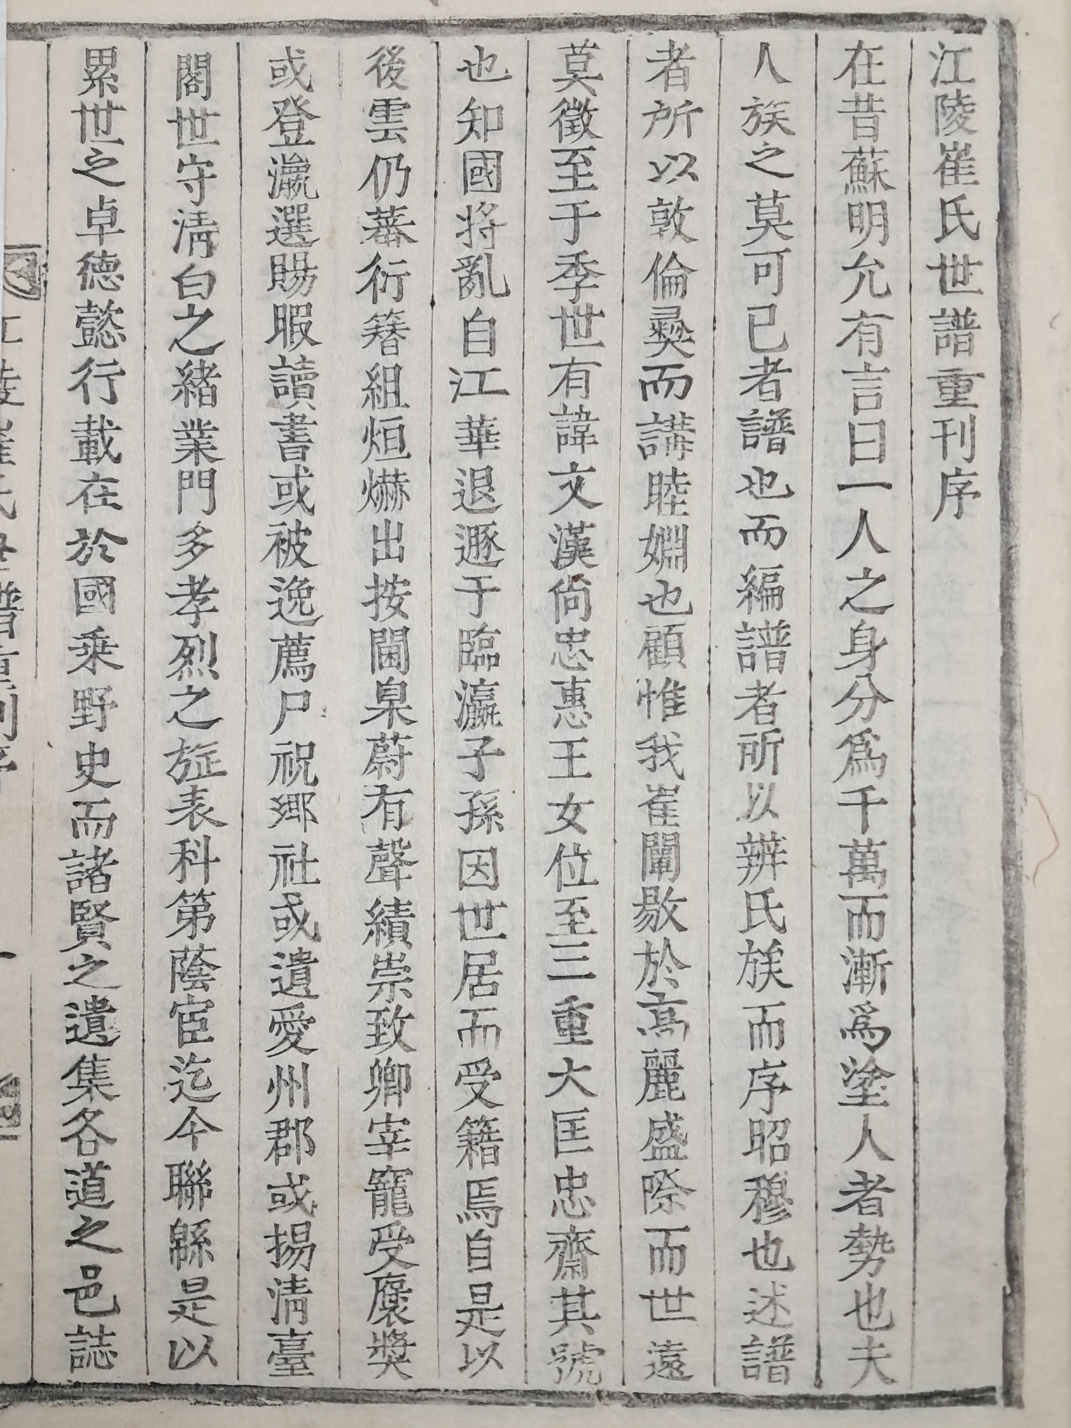 江陵崔氏世譜重刊序
在昔蘇明允有言曰一人之身分爲千萬而漸爲塗人者勢也夫
人族之莫可已者譜也而編譜者所以辨氏族而序昭穆也述譜
者所以敦倫彜而講睦婣也顧惟我崔闡敭於高麗盛際而世遠
莫徵至于季世有諱文漢尙忠惠王女位至三重大匡忠齋其號
也知國將亂自江華退遯于臨瀛子孫因世居而受籍焉自是以
後雲仍蕃衍簪組烜爀出按閫臬蔚有聲績崇致卿宰寵受褒奬
或登瀛選賜暇讀書或被逸薦尸祝鄕社或遺愛州郡或揚淸臺
閣世守淸白之緖業門多孝烈之旌表科第蔭宦迄今聯緜是以
累世之卓德懿行載在於國乗野史而諸賢之遺集各道之邑誌
江陵崔氏世譜重刊序